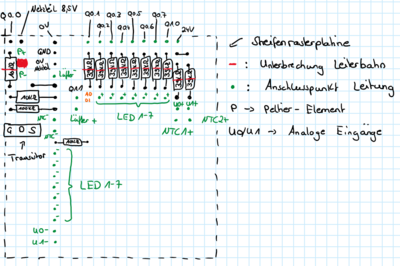 Q0.0
Netzteil 8,5V
0V
Q0.1 Q0.3 Q0.5 Q0.7
Q0.2 Q0.4 Q0.6 Q1.0
24V
P+
P-
GND
0V
Lüfter
Q1.1
Lüfter +
A0
U0+ U1+
LED 1-7
NTC2+
NTC1+
NTC
NTC
G D S
Transistor
LED 1-7
U0-
U1-
Streifenrasterplatine
- : Unterbrechung Leiterbahn
• : Anschlusspunkt Leitung
P → Peltier-Element
U0/U1 → Analoge Eingänge